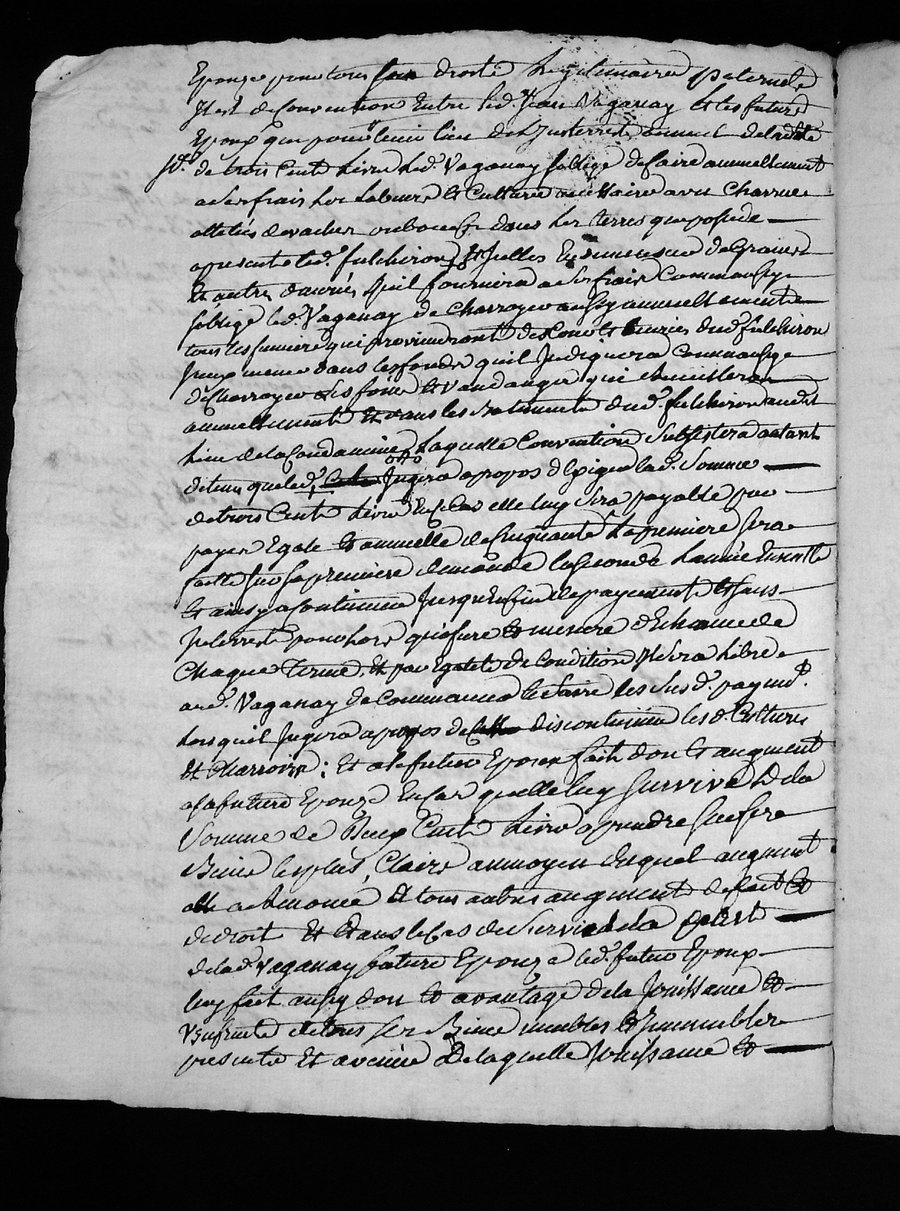 Epouze pour tous ses droits Legitimaire paternels
Il est de Convention Entre led. Jean Vaganay Et les futurs
Epoux que pour tenir lieu de l'Jnterrest annuel de
sd. de trois Cent Livre led. Vaganay soblige de faire annuellement
a ses frais les Labeurs & Culture avec Charrue
attelées de vaches ou boeufs dans les terres que possede
apresent led. fulchiron, Et Jcelles Ensemencer de Graines
Et autres danrées quil fournira a ses frais Comme aussy
soblige led. Vaganay de Charroyer aussy annuellement
tous les fumiers qui proviendront des Ecuries dud. fulchiron
Jceux mener dans les fonds quil Jndiquera Comme aussy
de Charroyer Les foins & Vandanges qui se
annuellement Et dans les Batiments dud. fulchiron aud.
Lieu de la Condamine, Laquelle Convention Subsistera autant
de tems que led. Jugera apropos d'Exiger lad. Somme
de trois Cent Livre EnCe Cas elle luy sera payable par
payes Egale & annuelle de Cinquante La premiere sera
faitte sur sa premiere demande la seconde Lannée Ensuitte
& ainsy a Continuer Jusqu'Enfin de payement & sans
Jnterrest pour lors qu'a fure & mesure d'Echeance de
Chaque terme, Et par Egalité de Condition Jl sera Libre
aud. Vaganay de Commancer & faire les susd. payemt.
Lors quil Jugera apropos de discontinuer les d. Cultures
Et Charrois; Et a le futur Epoux fait don & augment
a la future Epouze En Cas quelle luy survive de la
Somme de Deux Cent Livre a prendre sur ses
Biens les plus Claire au moyen duquel augment
elle a Renoncé Et tous autres augment de fait &
de droit Et dans le Cas de survie de la part
de lad. Vaganay future Epouze led. futur Epoux
luy fait aussy don & avantage de la Jouissance &
Vsufruit de tous ses Biens meubles & Jmmeubles
presents Et avenir De laquelle Jouissance &